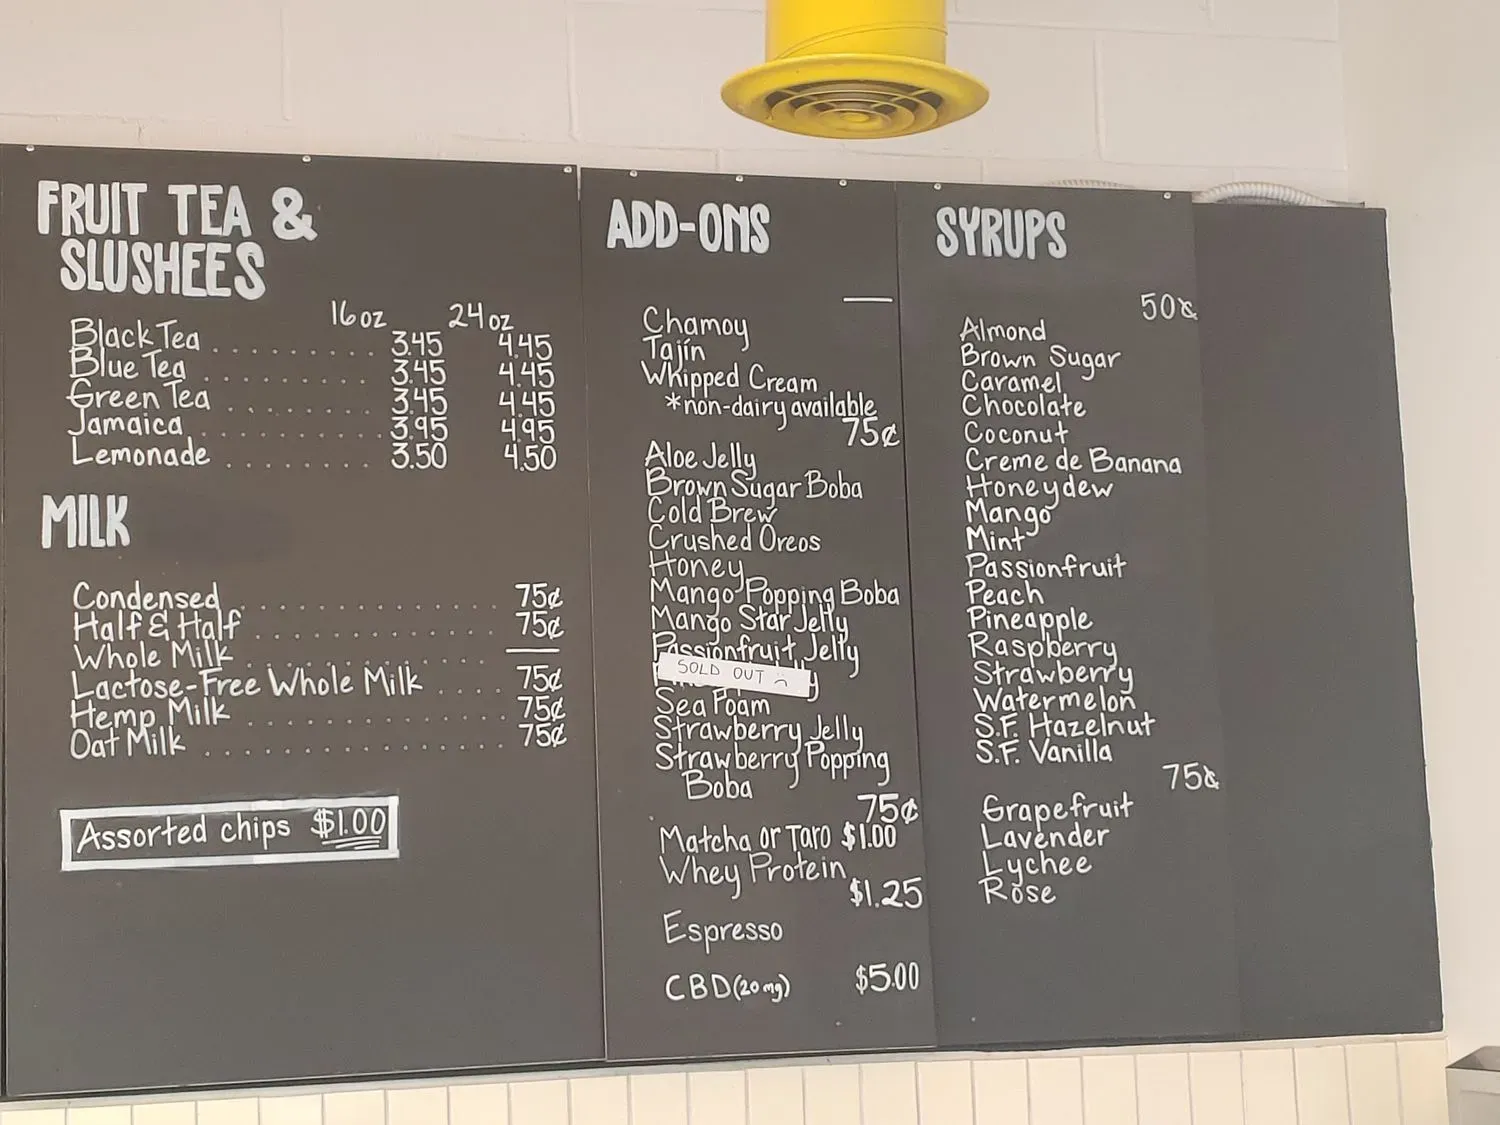 FRUIT TEA &
SLUSHEES
16oz 24oz
Black Tea . . . . . . . . . . . 3.45 4.45
Blue Tea . . . . . . . . . . . 3.45 4.45
Green Tea . . . . . . . . . 3.45 4.45
Jamaica . . . . . . . . . . . 3.95 4.95
Lemonade . . . . . . . . . 3.50 4.50
MILK
Condensed . . . . . . . . . . . . . . . . 75¢
Half & Half . . . . . . . . . . . . . . . 75¢
Whole Milk . . . . . . . . . . . . . . —
Lactose-Free Whole Milk . . . . 75¢
Hemp Milk . . . . . . . . . . . . . . . . 75¢
Oat Milk . . . . . . . . . . . . . . . . . . 75¢
Assorted chips $1.00
ADD-ONS
—
Chamoy
Tajín
Whipped Cream
*non-dairy available
75¢
Aloe Jelly
Brown Sugar Boba
Cold Brew
Crushed Oreos
Honey
Mango Popping Boba
Mango Star Jelly
Passionfruit Jelly
SOLD OUT :(
Sea Foam
Strawberry Jelly
Strawberry Popping
Boba
75¢
Matcha or Taro $1.00
Whey Protein
$1.25
Espresso
CBD (20mg) $5.00
SYRUPS
50¢
Almond
Brown Sugar
Caramel
Chocolate
Coconut
Creme de Banana
Honeydew
Mango
Mint
Passionfruit
Peach
Pineapple
Raspberry
Strawberry
Watermelon
S.F. Hazelnut
S.F. Vanilla
75¢
Grapefruit
Lavender
Lychee
Rose